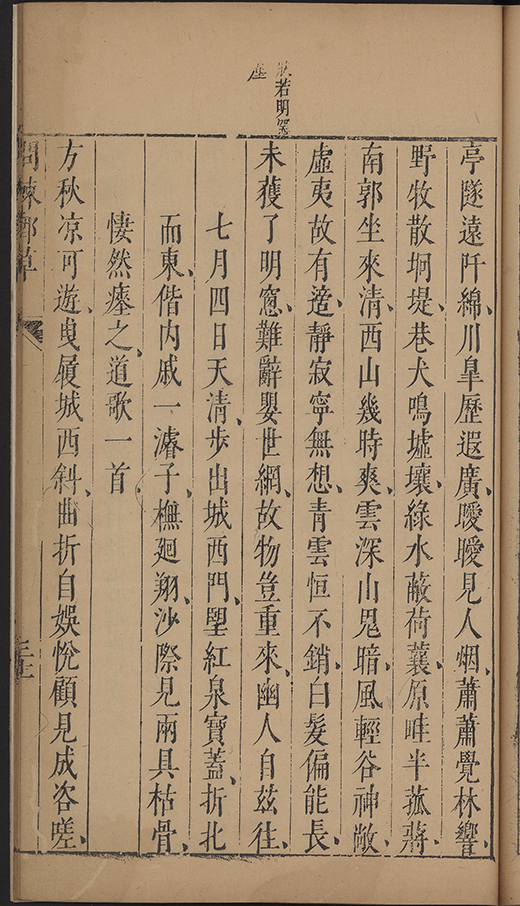 般若明窓
座
亭隧遠阡綿、川臯歷遐廣、曖曖見人烟、蕭蕭覺林響、
野牧散坰堤、巷犬鳴墟壤、綠水蔽荷蓑、原畦半菰蔣、
南郭坐來清、西山幾時爽、雲深山鬼暗、風輕谷神敞、
虛夷故有適、靜寂寧無想、青雲恒不銷、白髮偏能長、
未獲了明窓、難辭嬰世網、故物豈重來、幽人自茲往、
七月四日天清、步出城西門、望紅泉寶蓋、折北
而東、偕內戚一濬子、橅廻翔、沙際見兩具枯骨、
悽然瘞之、道歌一首、
方秋凉可遊、曳履城西斜、曲折自娛悅、顧見成咨嗟、
問棘郵草